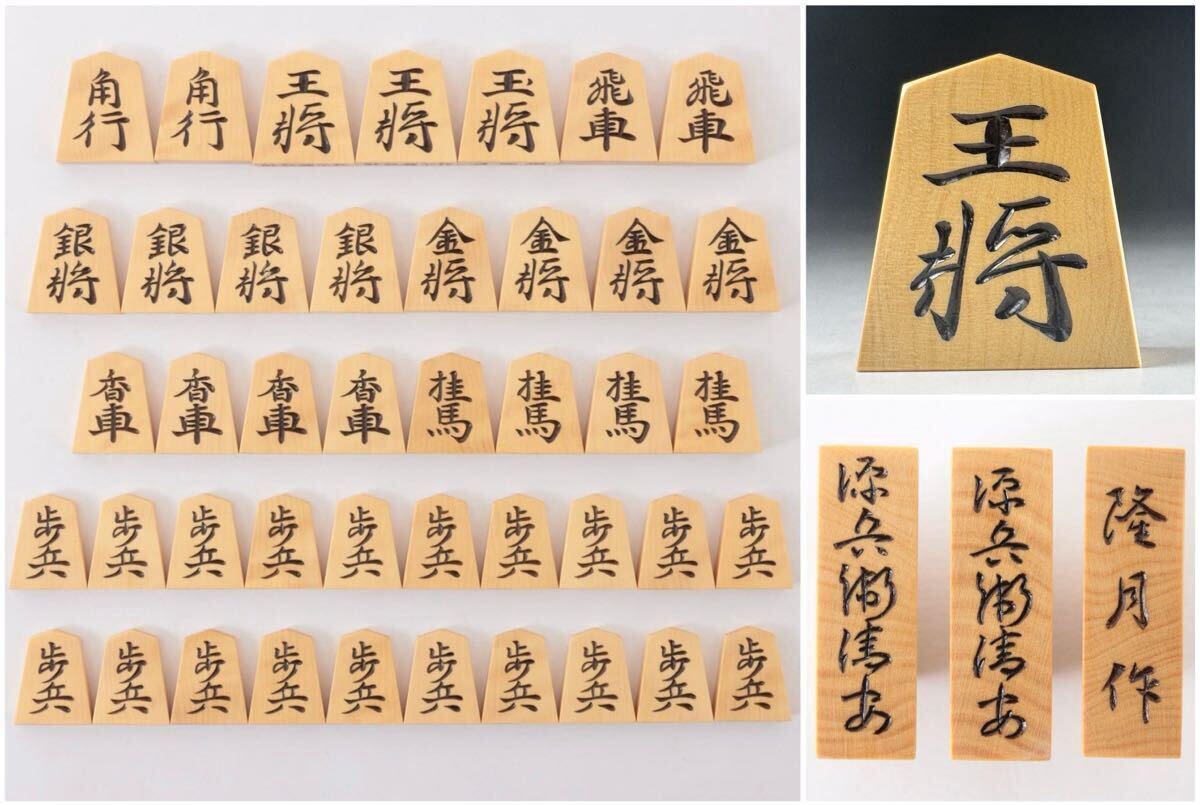 角行 角行 王将 王将 玉将 飛車 飛車
銀将 銀将 銀将 銀将 金将 金将 金将 金将
香車 香車 香車 香車 桂馬 桂馬 桂馬 桂馬
歩兵 歩兵 歩兵 歩兵 歩兵 歩兵 歩兵 歩兵 歩兵 歩兵
歩兵 歩兵 歩兵 歩兵 歩兵 歩兵 歩兵 歩兵 歩兵 歩兵
王将
源兵衛清安
源兵衛清安
隆月作